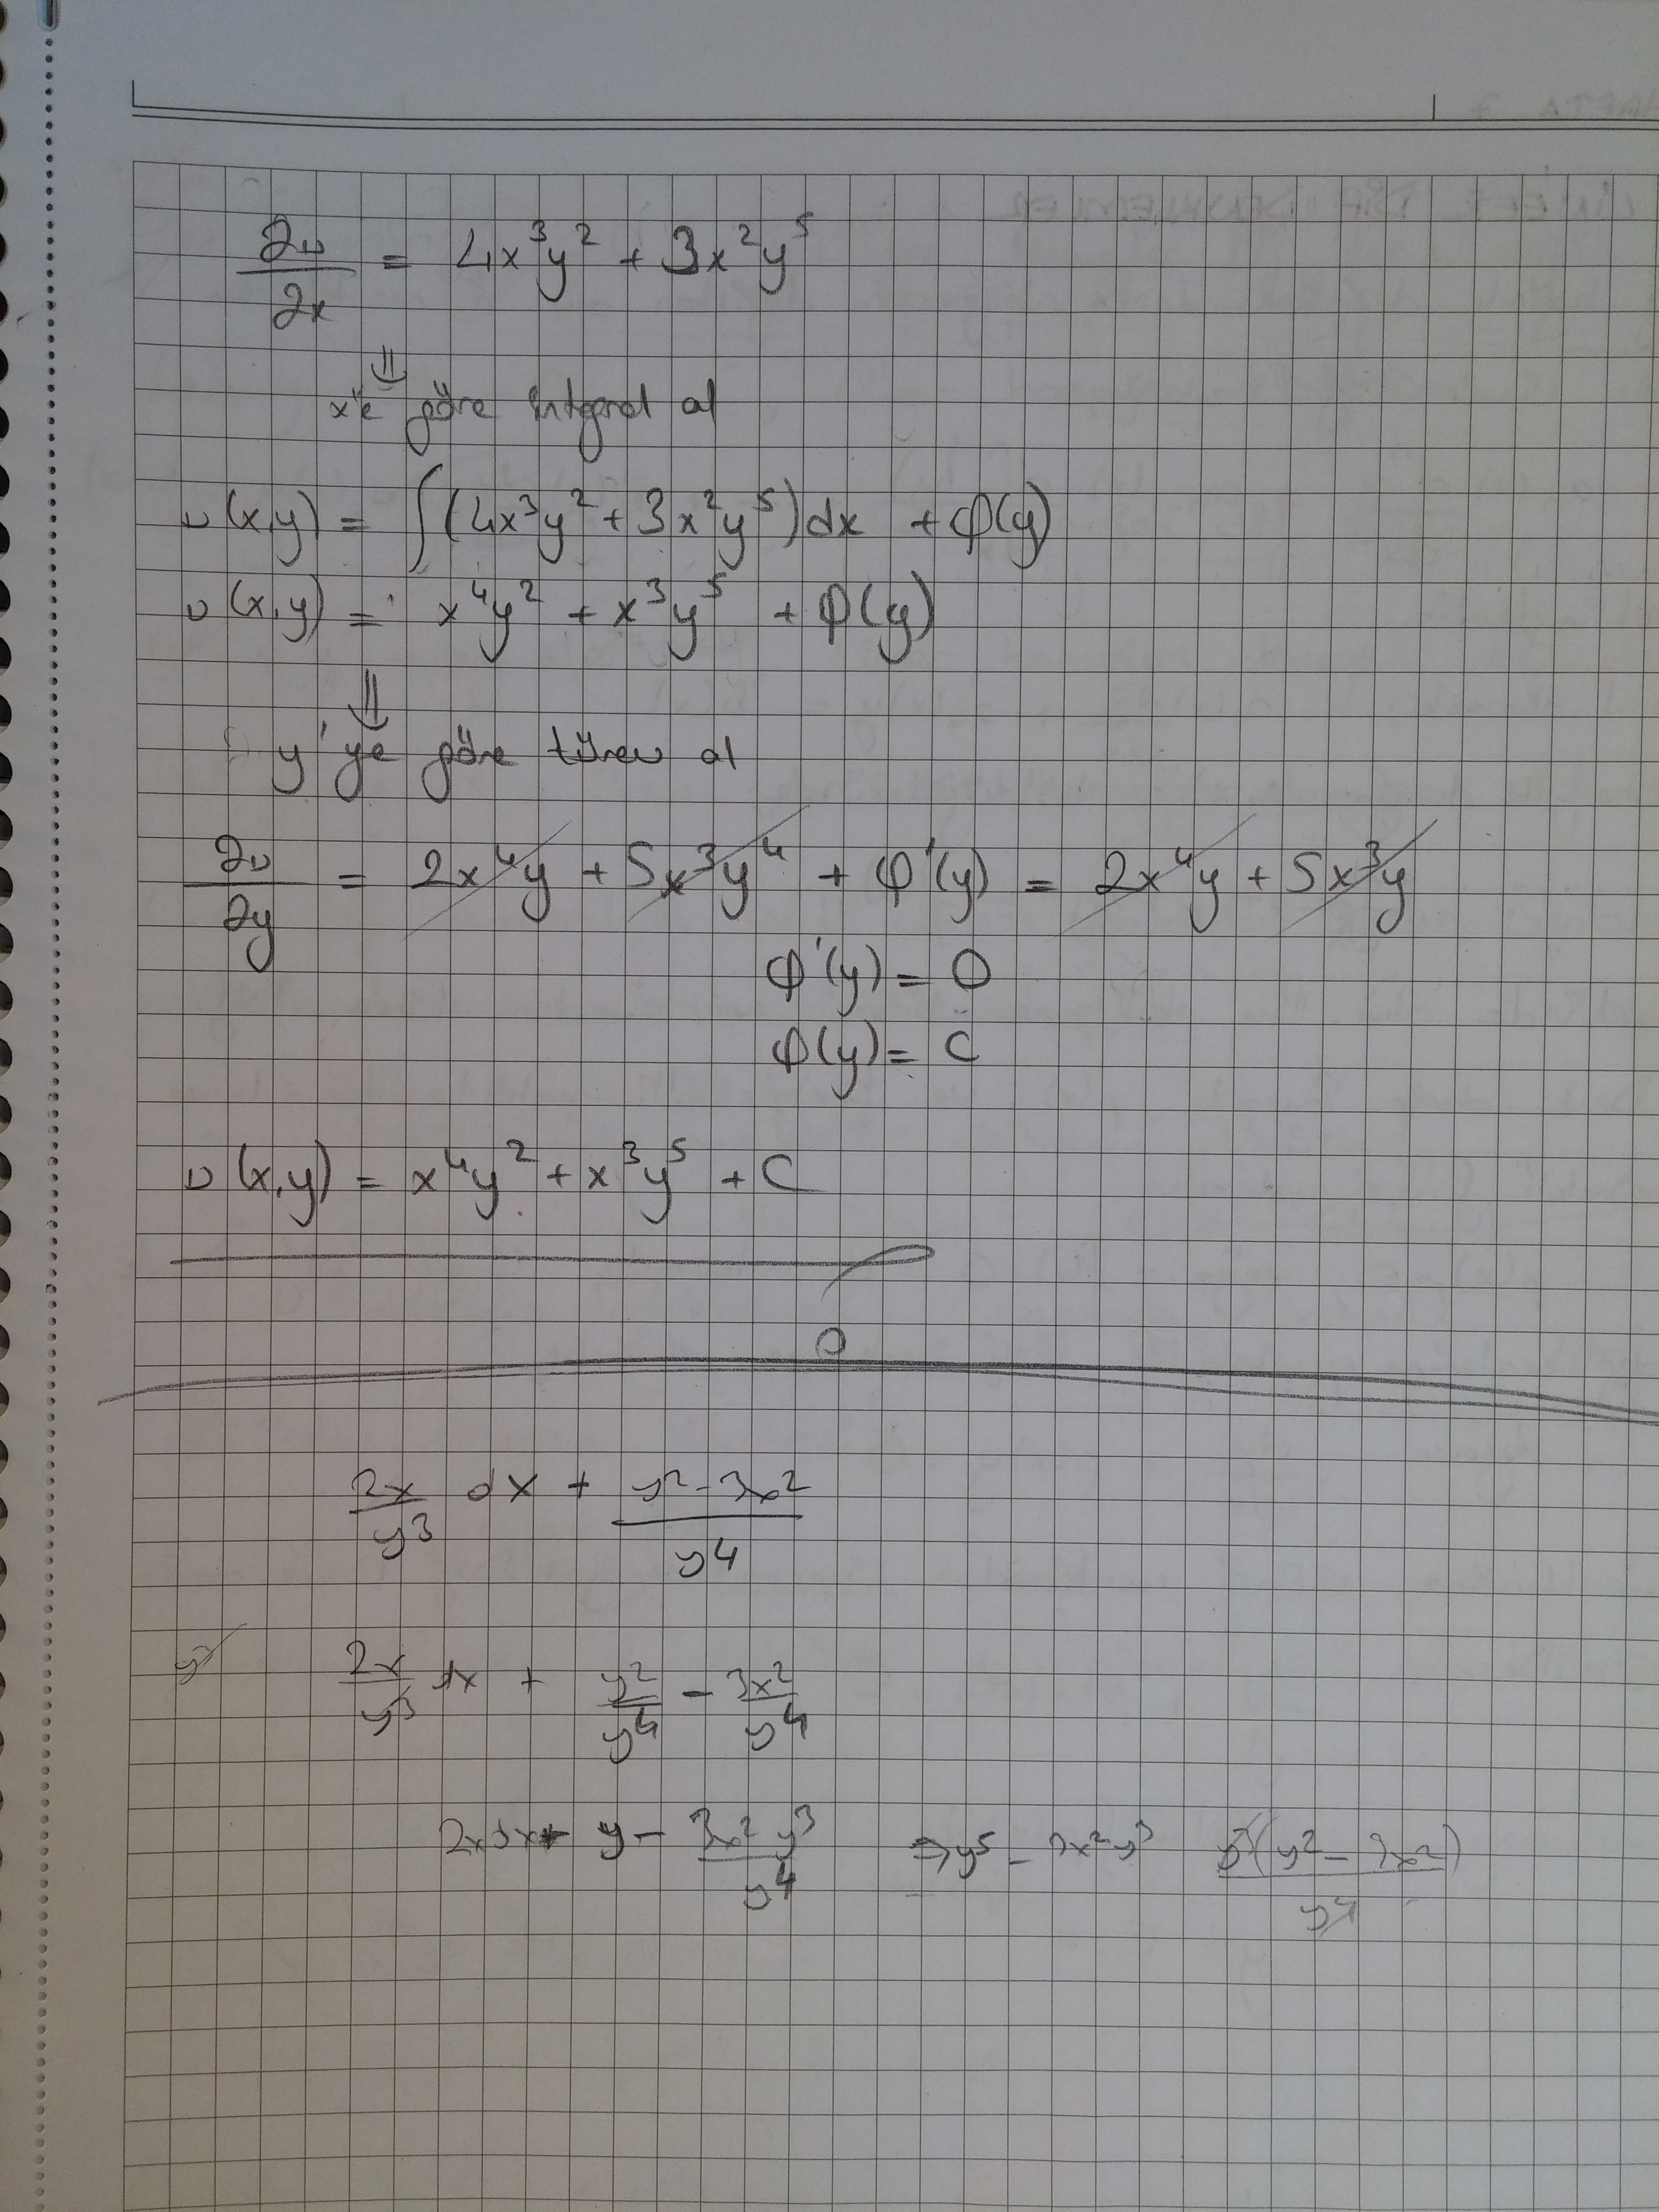 ∂u/∂x = 4x³y² + 3x²y⁵
⇓
x'e göre integral al
u(x,y) = ∫(4x³y² + 3x²y⁵)dx + φ(y)
u(x,y) = x⁴y² + x³y⁵ + φ(y)
⇓
y'ye göre türev al
∂u/∂y = 2x⁴y + 5x³y⁴ + φ'(y) = 2x⁴y + 5x³y
φ'(y) = 0
φ(y) = C
u(x,y) = x⁴y² + x³y⁵ + C
2x/y³ dx + (y² - 3x²)/y⁴
2x/y³ dx + y²/y⁴ - 3x²/y⁴
2xdx + y - 3x²y³/y⁴ ⇒ y⁵ - 3x²y³ y³(y² - 3x²)/y⁴